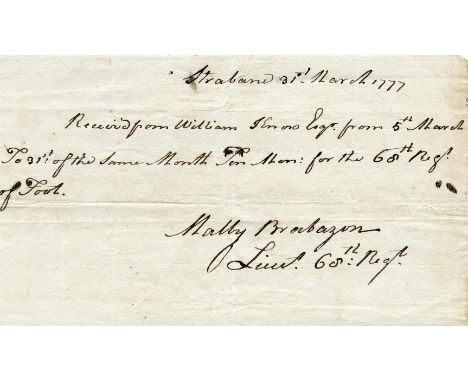 Strabane 31st March 1777
Receiv'd from William Knox Esqr. from 5th March
To 31st. of the Same Month Ten Men: for the 68th Regt.
of Foot.
Malby Brabazon
Lieut. 68th: Regt.